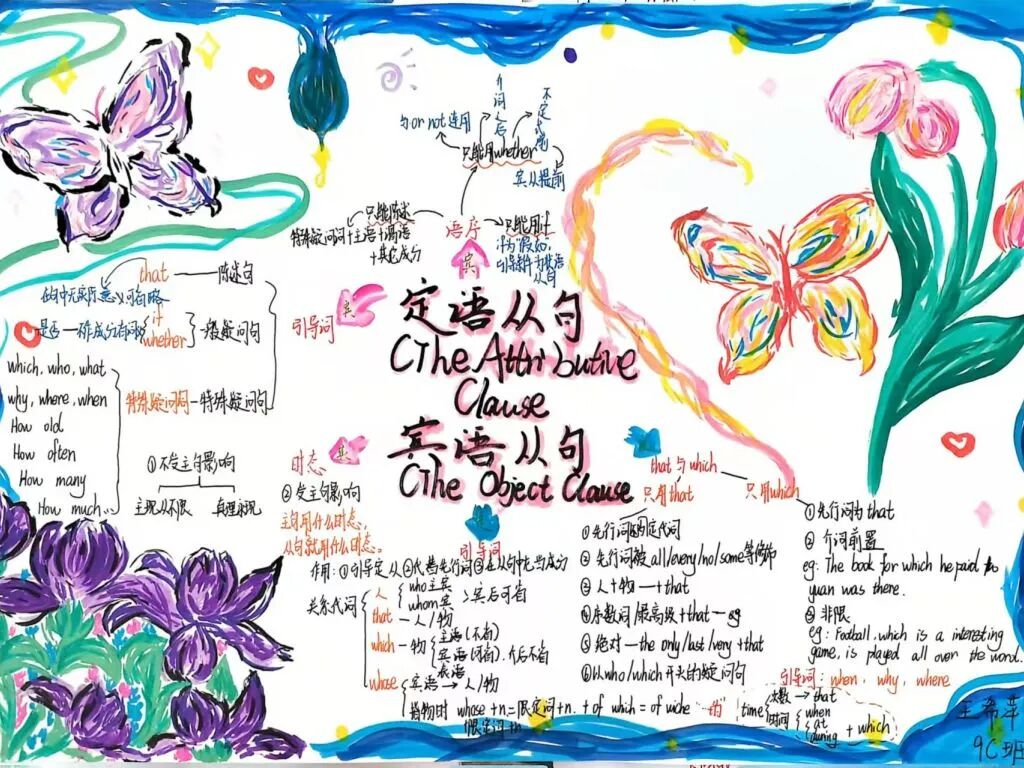 定语从句
(The Attributive
Clause
宾语从句
(The Object Clause
语序
只能用whether
与or not连用
介词之后
不定式前
宾从提前
只能陈述
特殊疑问词+主语+谓语
+其它成分
只能用if
if为"假如"
引导条件为状语
从句
引导词
that — 陈述句
句中无实际意义可省略
是否 — 不作成分有词义
if
whether
一般疑问句
which, who, what
why, where, when
How old
How often
How many
How much...
特殊疑问词 — 特殊疑问句
时态
①不受主句影响
主现从不限
真理永现
②受主句影响
主句用什么时态,
从句就用什么时态。
引导词
作用: ①引导定从 ②代替先行词 ③在从句中充当成分
关系代词
人
who 主宾
whom 宾
宾后可省
that — 人/物
which — 物
主语(不省)
宾语(可省). 介后不省
表语
whose
定语 → 人/物
指物时 whose +n.=限定词+n. + of which = of wiche
限定词+n
"的"
that 与 which
只用that
①先行词为不定代词
②先行词被all/every/no/some等修饰
③人+物 — +that
④序数词/最高级+that — eg
⑤绝对 — the only/last/very +that
⑥以who/which开头的疑问句
只用which
①先行词为that
②介词前置
eg: The book for which he paid
yuan was there.
③非限
eg: Football, which is a interesting
game, is played all over the word.
引导词: when, why, where
time
次数 → that
时间
when
at
during
+ which
王希苹
9C班